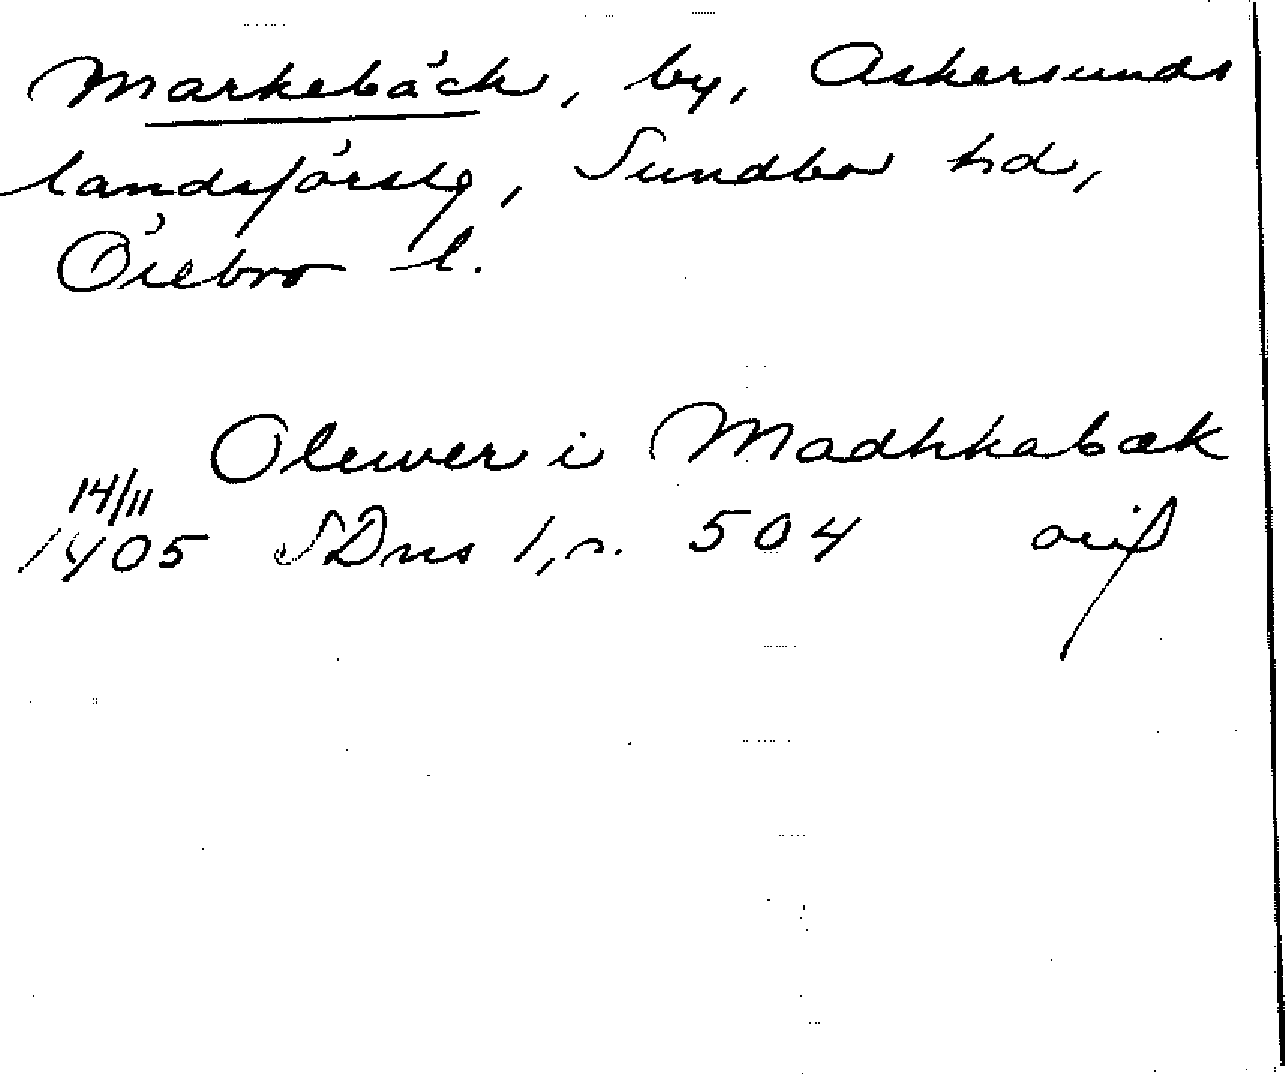 Markebäck, by, Askersunds
landsförslg, Sundbo hd,
Örebro l.
Olewer i Madhkabæk
14/11
1405 SDns 1, s. 504 orig